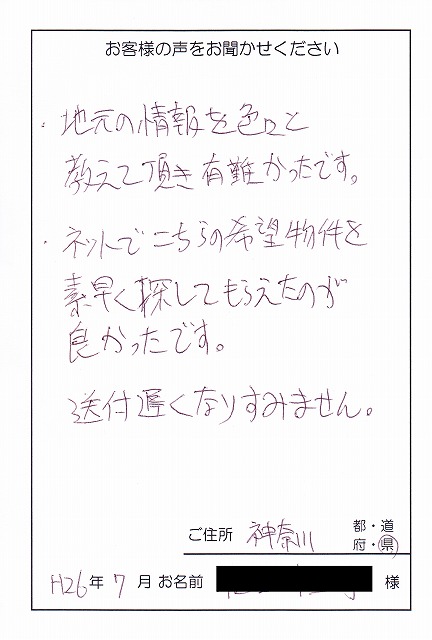 お客様の声をお聞かせください
・地元の情報を色々と
教えて頂き有難かったです。
・ネットでこちらの希望物件を
素早く探してもらえたのが
良かったです。
送付遅くなりすみません。
ご住所 神奈川 都・道
府・県
H26年 7月 お名前 様